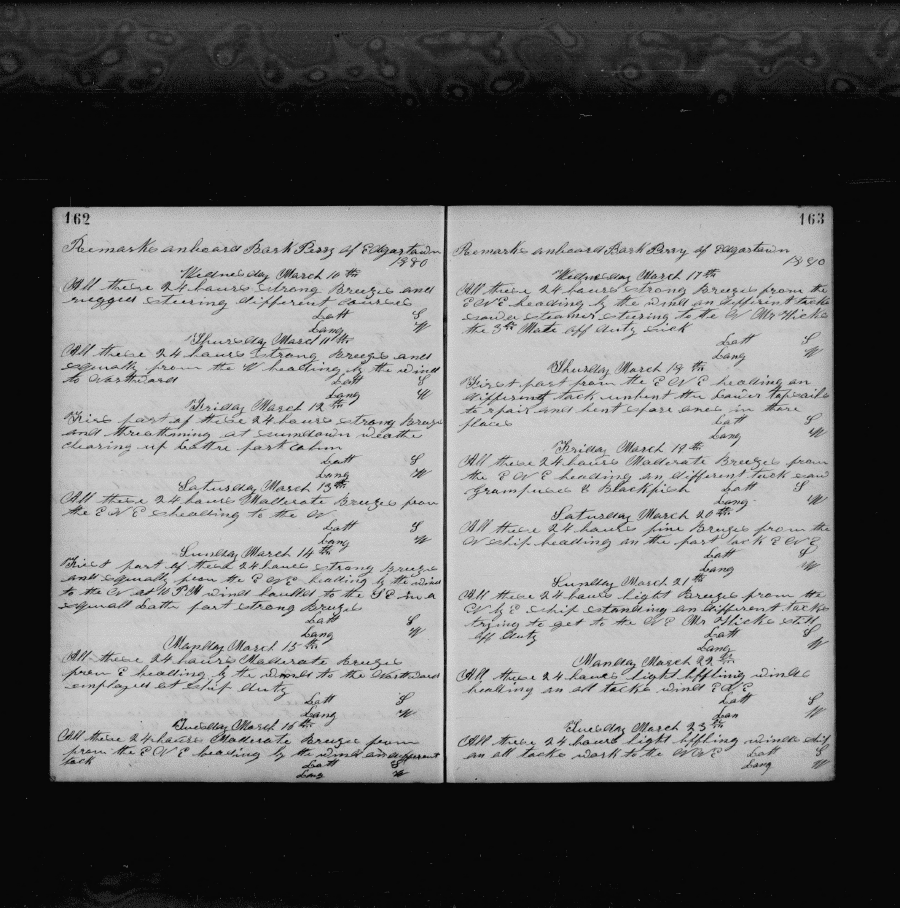 162
Remarks onboard Bark Perry of Edgartown
1880
Wednesday March 10th
All these 24 hours strong Breeze and
rugged steering different courses
Latt S
Long W
Thursday March 11th
All these 24 hours strong Breeze and
squally from the W heading by the wind
to Northward Latt S
Long W
Friday March 12th
Firs part of these 24 hours strong Breeze
and threathning at sundown weathe
clearing up Lattre part calm
Latt S
Long W
Saturday March 13th
All these 24 hours Maderate Breeze from
the E N E heading to the N
Latt S
Long W
Sunday March 14th
First part of these 24 hours strong Breeze
and squally from the E N E heading by the wind
to the N at P M wind haulded to the S E in a
squall Latte part strong Breeze
Latt S
Long W
Monday March 15th
All these 24 hours Maderate Breeze
from E heading by the wind to the Northward
employed at ship duty
Latt S
Long W
Tuesday March 16th
All these 24 hours Maderate Breeze from
from the E N E heading by the wind on different
tack
Latt S
Long W
163
Remarks onboard Bark Perry of Edgartown
1880
Wednesday March 17th
All these 24 hours strong Breeze from the
E N E heading by the wind on different tacks
saw a steamer steering to the N Mr Hicks
the 3rd Mate off duty sick
Latt S
Long W
Thursday March 18th
First part from the E N E heading on
different tack unbent the Lower topsails
to repair and bent spare ones in there
places Latt S
Long W
Friday March 19th
All these 24 hours Maderate Breeze from
the E N E heading on different tack saw
grampuses & Blackfish Latt S
Long W
Saturday March 20th
All these 24 hours fine Breeze from the
N ship heading on the port tack E N E
Latt S
Long W
Sunday March 21th
All these 24 hours light Breeze from the
N by E ship standing on different tacks
trying to get to the N E Mr Hicks still
off duty Latt S
Long W
Monday March 22th
All these 24 hours light bffling winds
heading on all tacks wind E N E
Latt S
Lon W
Tuesday March 23th
All these 24 hours light bffling winds ship
on all tacks work to the N N E Latt S
Long W